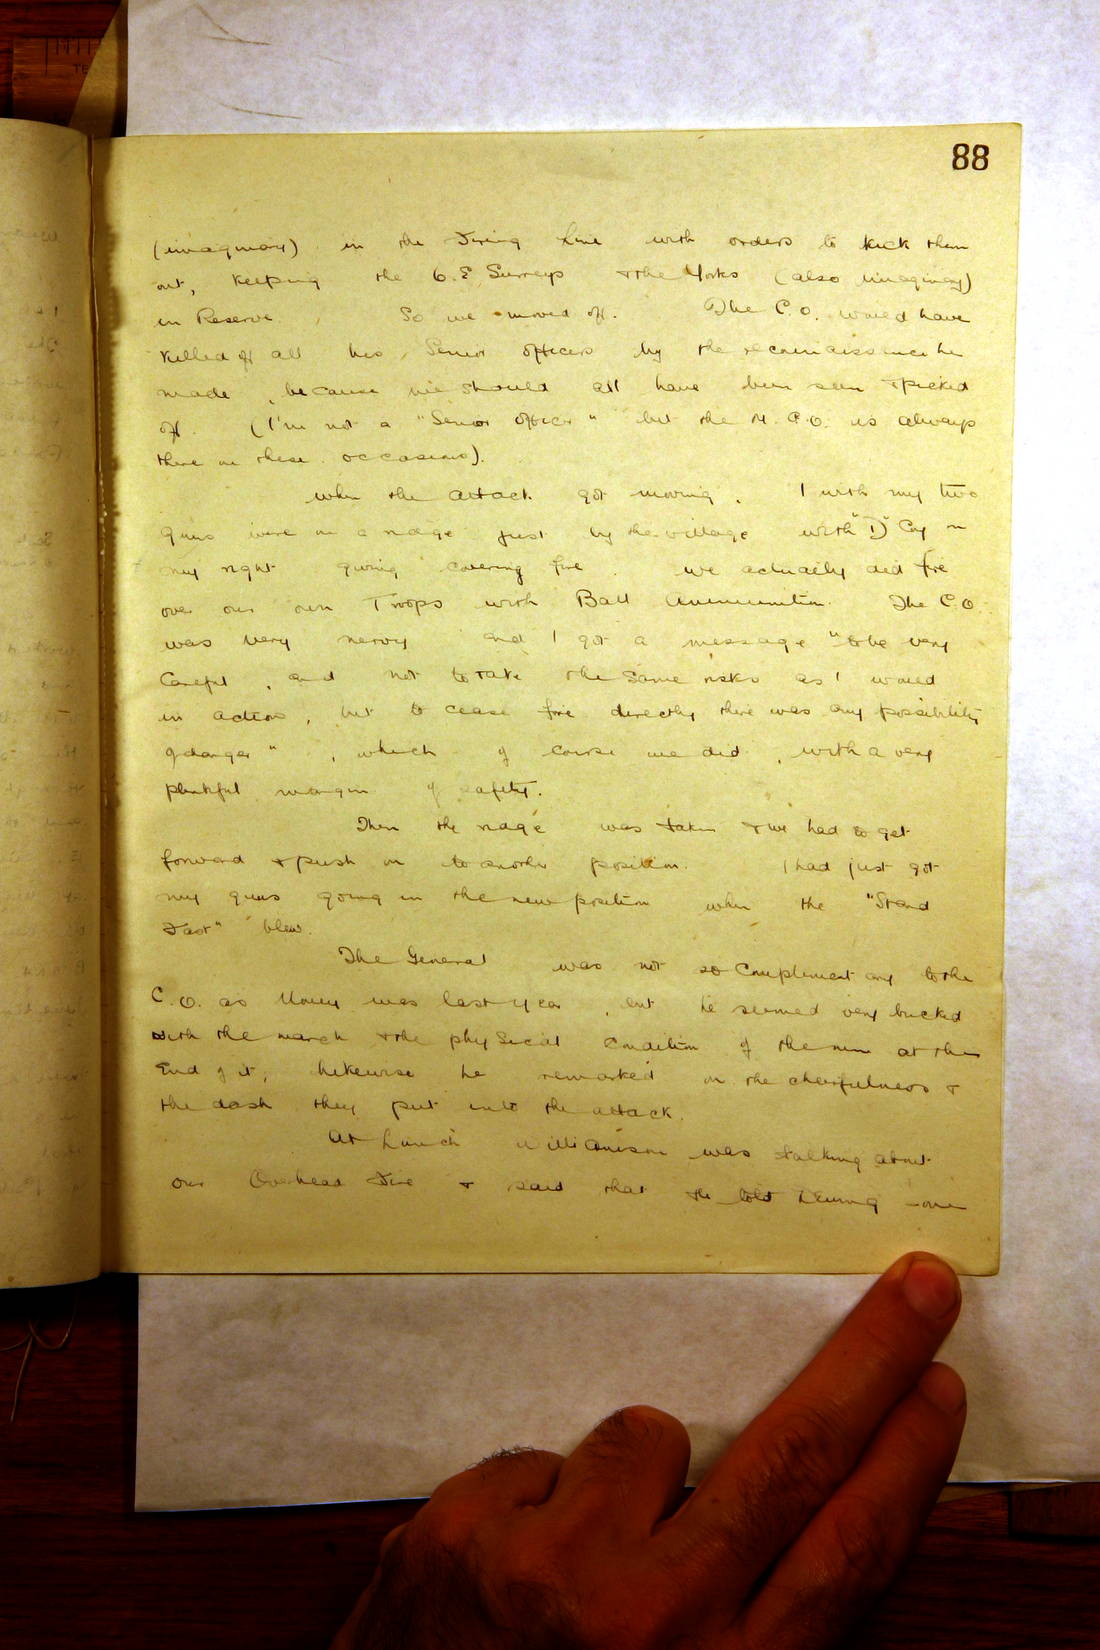 88
(imaginary) in the Firing Line with orders to kick them
out, keeping the 6.E Surreys & the Yorks (also imaginary)
in Reserve. So we moved off. The C.O. would have
killed off all his Senior officers by the reconnaissance he
made, because we should all have been seen & picked
off. (I'm not a "Senior Officer" but the M.G.O. is always
there on these occasions).
When the attack got moving, I with my two
guns were on a ridge just by the village with "D" Coy on
my right giving covering fire. We actually did fire
over our own Troops with Ball Ammunition. The C.O.
was very nervy and I got a message "to be very
careful, and not to take the same risks as I would
in action, but to cease fire directly there was any possibility
of danger", which of course we did, with a very
plentiful margin of safety.
Then the ridge was taken & we had to get
forward & push on to another position. I had just got
my guns going in the new position when the "Stand
Fast" blew.
The General was not so complimentary to the
C.O. as was last year, but he seemed very bucked
with the march & the physical condition of the men at the
End of it, likewise he remarked on the cheerfulness &
the dash they put into the attack.
At Lunch Williamson was talking about
our Overhead Fire & said that the told one